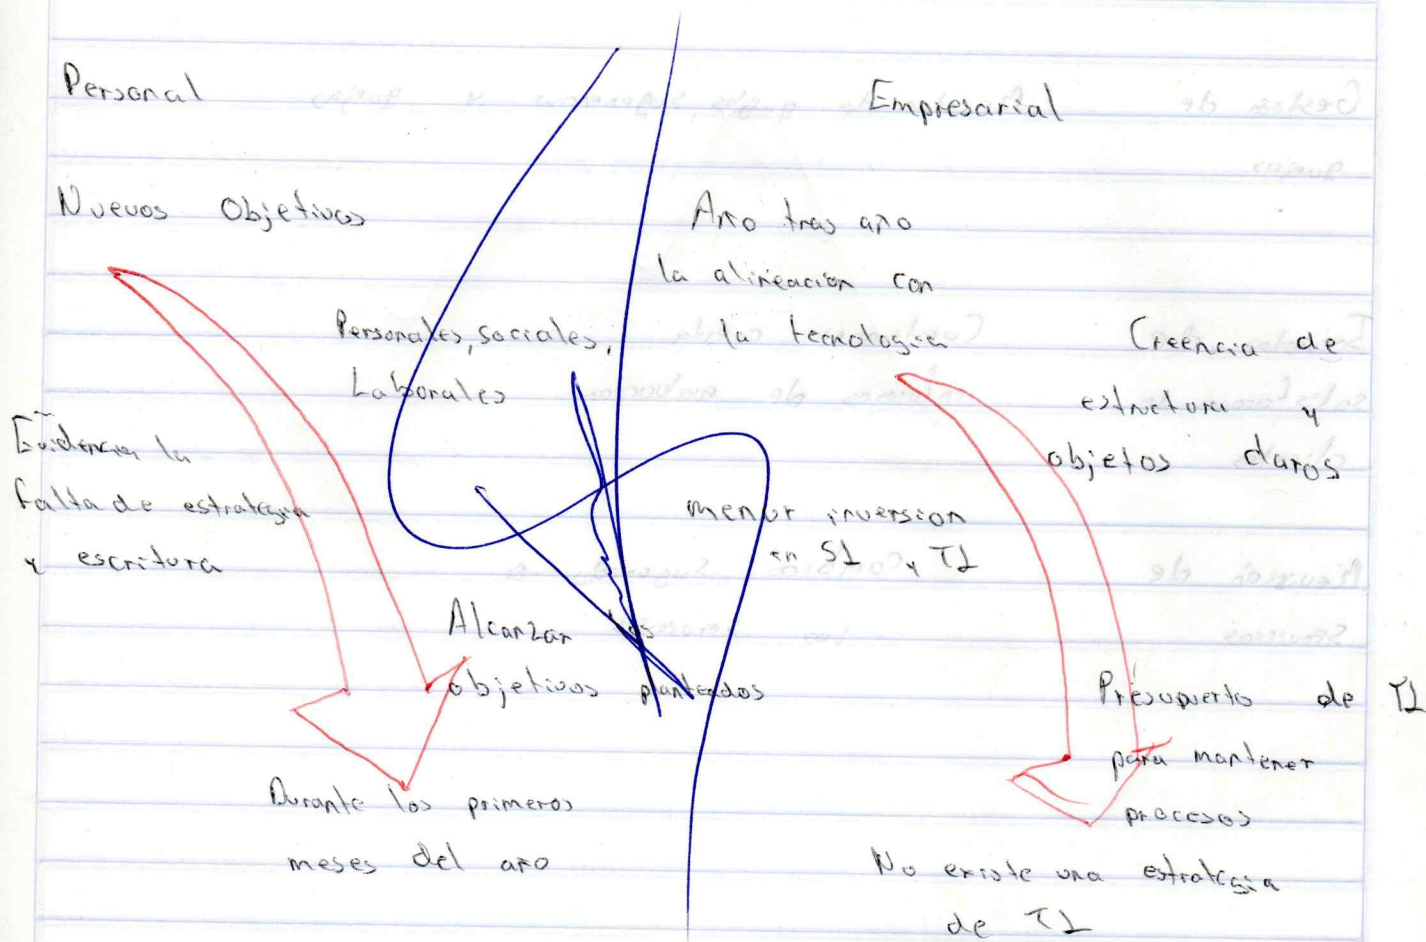 Personal
Nuevos Objetivos
Personales, sociales,
Laborales
Evidencia la
falta de estrategia
y escritura
Alcanzar los
objetivos planteados
Durante los primeros
meses del año
Empresarial
Año tras año
la alineación con
la tecnologia
Creencia de
estructura y
objetos claros
menor inversion
en SI y TI
Presupuerto de TI
para mantener
procesos
No existe una estrategia
de TI